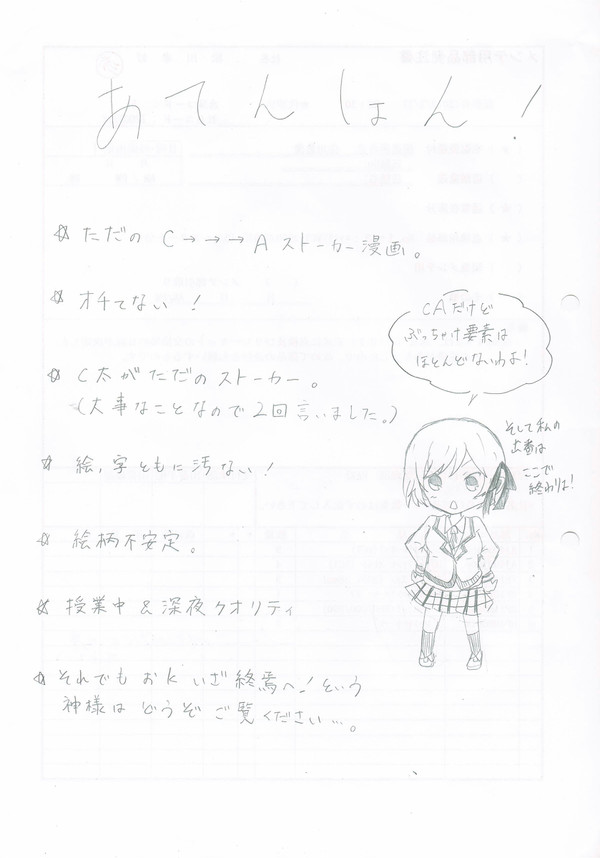 あてんしょん!
☆ ただの C→→→A ストーカー漫画。
☆ オチてない!
☆ C太がただのストーカー。
(大事なことなので2回言いました。)
☆ 絵,字ともに汚ない!
☆ 絵柄不安定。
☆ 授業中&深夜クオリティ
☆ それでもおK いざ終焉へ!という
神様はどうぞご覧ください…。
CAだけど
ぶっちゃけ要素は
ほとんどないわよ!
そして私の
出番は
ここで
終わりよ!